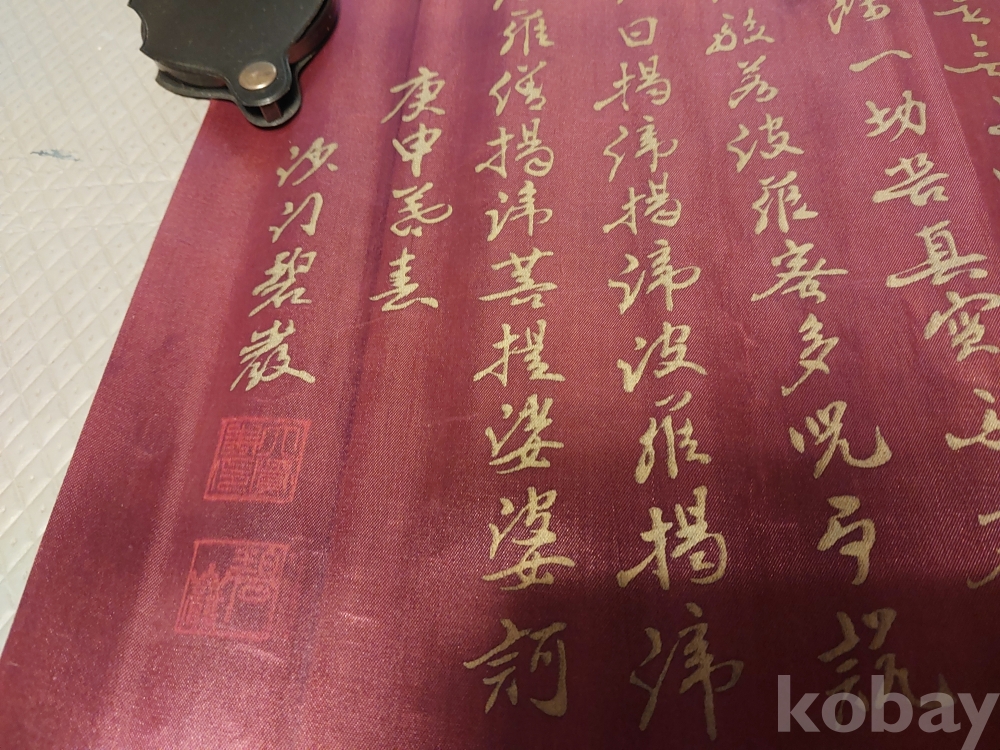 除一切苦真實不
般若波羅蜜多咒即說
曰揭諦揭諦波羅揭諦
羅僧揭諦菩提娑婆訶
庚申暮春
沙门碧巖
kobay